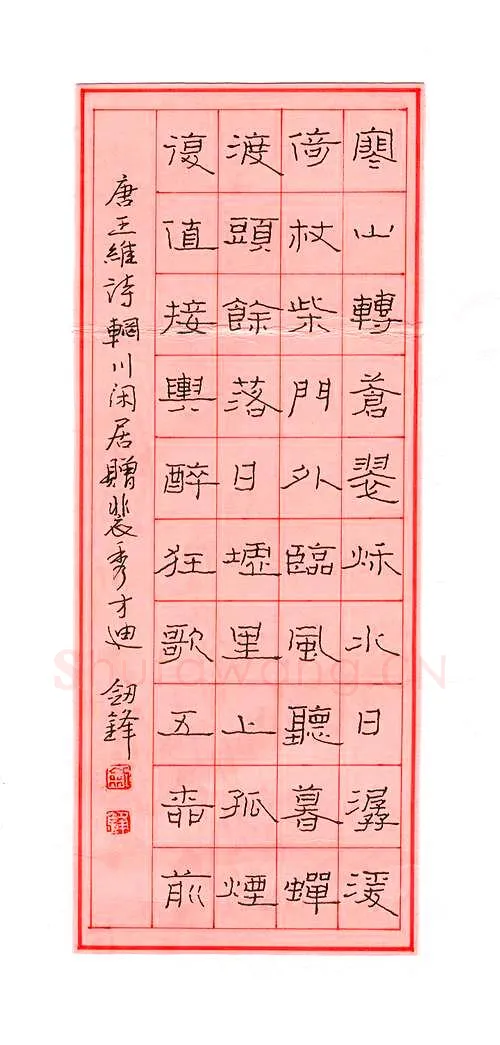 寒山轉蒼翠秋水日潺湲
倚杖柴門外臨風聽暮蟬
渡頭餘落日墟里上孤煙
復值接輿醉狂歌五柳前
唐王維詩輞川闲居贈裴秀才迪 釰鋒
Shufawang.CN